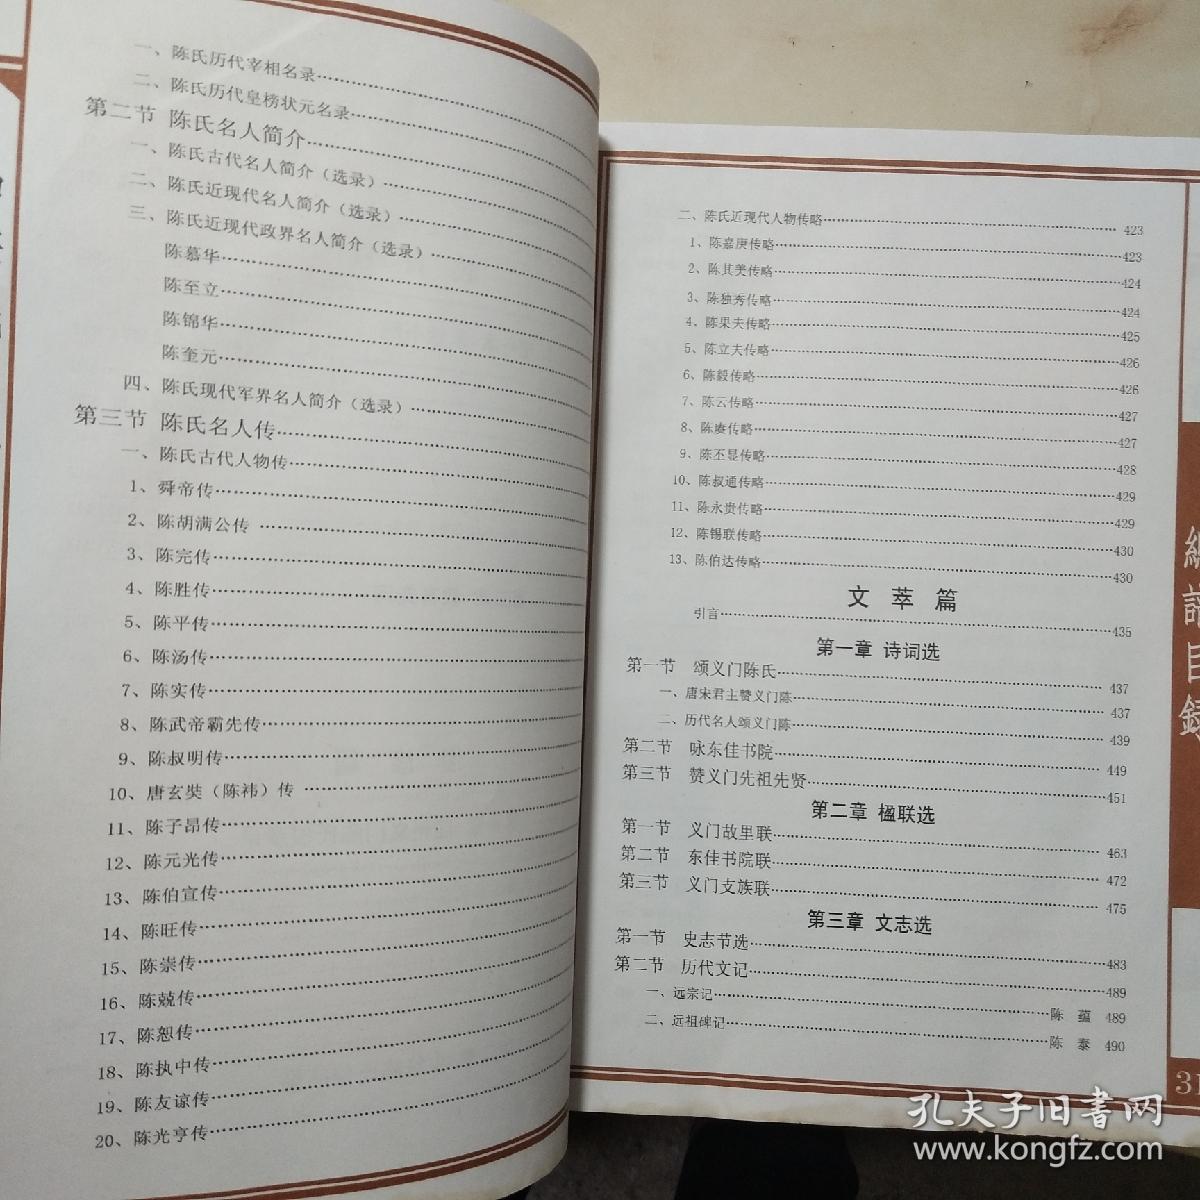 一、陈氏历代宰相名录
二、陈氏历代皇榜状元名录
第二节 陈氏名人简介
一、陈氏古代名人简介（选录）
二、陈氏近现代名人简介（选录）
三、陈氏近现代政界名人简介（选录）
陈慕华
陈至立
陈锦华
陈奎元
四、陈氏现代军界名人简介（选录）
第三节 陈氏名人传
一、陈氏古代人物传
1、舜帝传
2、陈胡满公传
3、陈完传
4、陈胜传
5、陈平传
6、陈汤传
7、陈实传
8、陈武帝霸先传
9、陈叔明传
10、唐玄奘（陈祎）传
11、陈子昂传
12、陈元光传
13、陈伯宣传
14、陈旺传
15、陈崇传
16、陈兢传
17、陈恕传
18、陈执中传
19、陈友谅传
20、陈光亨传
二、陈氏近现代人物传略 423
1、陈嘉庚传略 423
2、陈其美传略 424
3、陈独秀传略 424
4、陈果夫传略 425
5、陈立夫传略 426
6、陈毅传略 426
7、陈云传略 427
8、陈赓传略 427
9、陈丕显传略 428
10、陈叔通传略 429
11、陈永贵传略 429
12、陈锡联传略 430
13、陈伯达传略 430
文 萃 篇
引言 435
第一章 诗词选
第一节 颂义门陈氏 437
一、唐宋君主赞义门陈 437
二、历代名人颂义门陈 439
第二节 咏东佳书院 449
第三节 赞义门先祖先贤 451
第二章 楹联选
第一节 义门故里联 463
第二节 东佳书院联 472
第三节 义门支族联 475
第三章 文志选
第一节 史志节选 483
第二节 历代文记 489
一、远宗记 陈 蕴 489
二、远祖碑记 陈 泰 490
目錄
孔夫子旧书网
www.kongfz.com